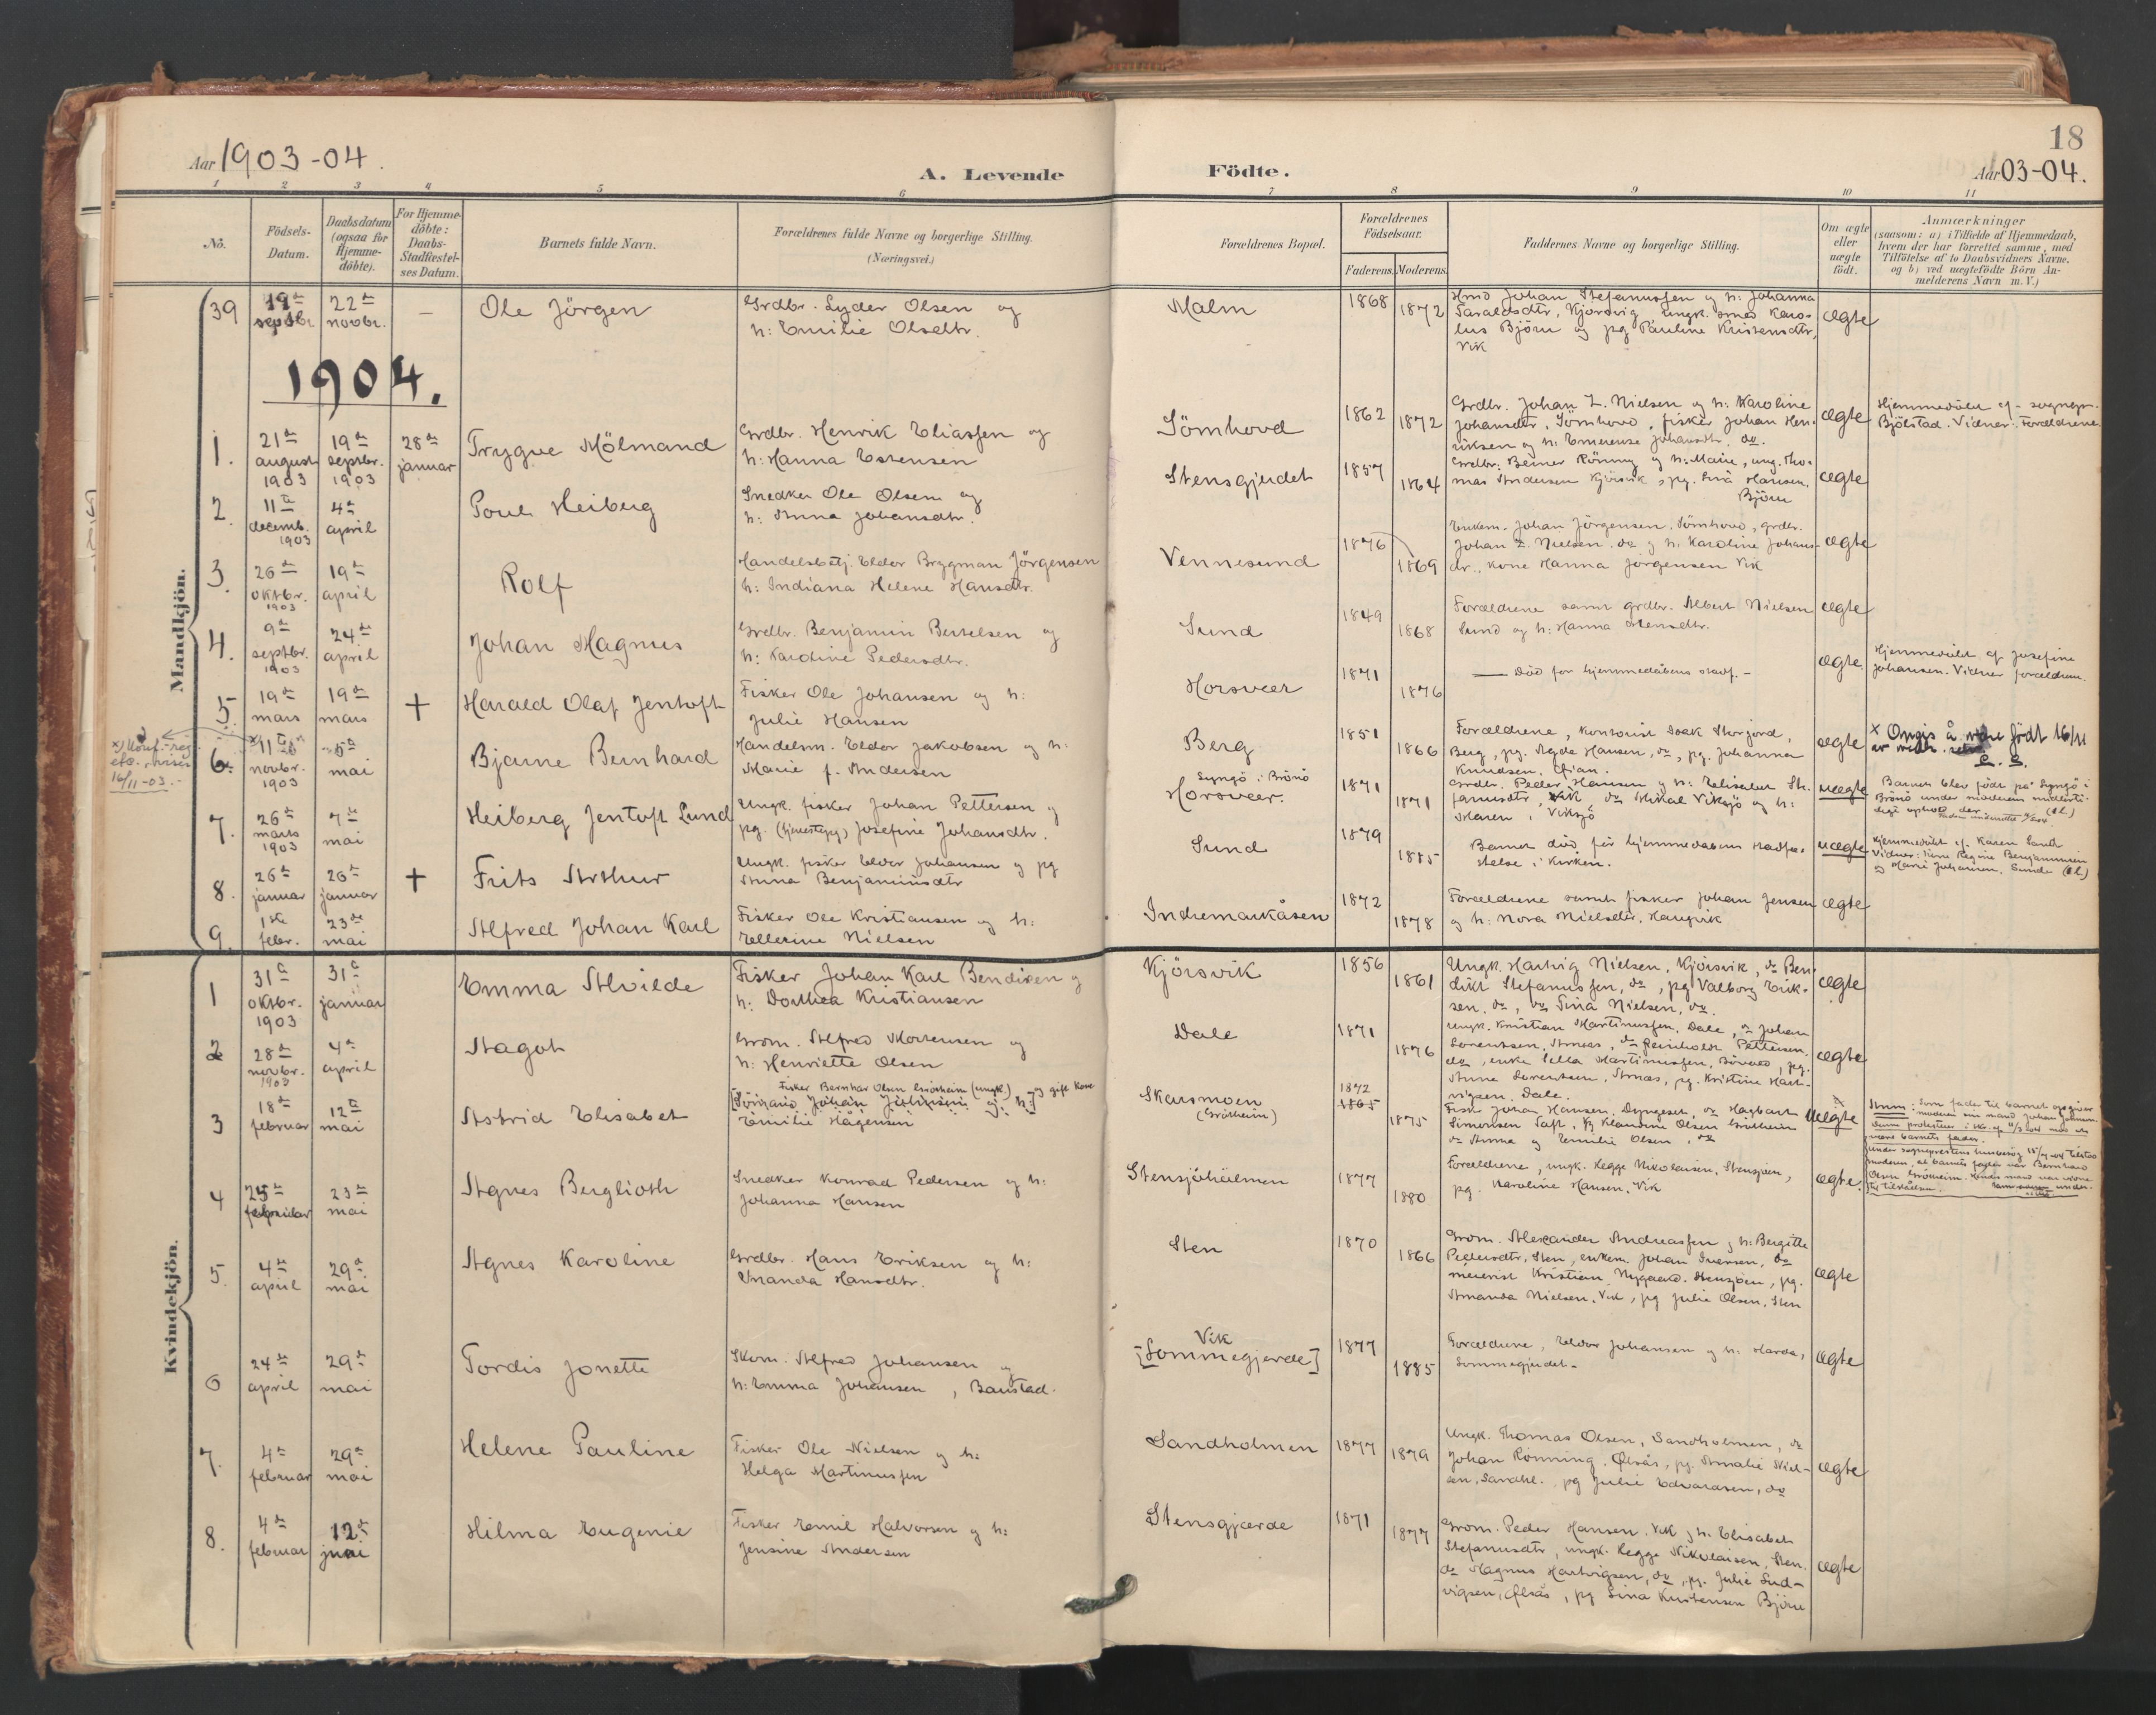 Aar 1903-04.
A. Levende Födte.
18
Aar 03-04.
1 2 3 4 5 6 7 8 9 10 11
Nö.
Födsels-Datum.
Daabsdatum (ogsaa for Hjemme-döbte).
For Hjemme-döbte: Daabs-Stadfæstel-ses Datum.
Barnets fulde Navn.
Forældrenes fulde Navne og borgerlige Stilling. (Næringsvei.)
Forældrenes Bopæl.
Forældrenes Födselsaar.
Faderens. Moderens.
Faddernes Navne og borgerlige Stilling.
Om ægte eller uægte födt.
Anmærkninger
(saasom: a) i Tilfælde af Hjemmedaab,
hvem der har forrettet samme, med
Tilföielse af to Daabsvidners Navne,
og b) ved uægtefödte Börn An-
melderens Navn m. V.)
Mandkjön.
39 19de septbr. 22de novbr. — Ole Jörgen
Grdbr. Lyder Olsen og
h: Emilie Olsdtr.
Malm 1868 1872
Hmd Johan Stefanussen og h: Johanna
Taraldsdtr, Kjørsvig, ungk. Karo-
lus Björn og pg Pauline Kristensdtr,
Vik
ægte
1904.
1. 21de august 1903 19de septbr. 1903 28de januar Trygve Mölmand
Grdbr. Henrik Eliassen og
h: Hanna Estensen
Sömhovd 1862 1872
Grdbr. Johan Z. Nielsen og h: Karoline
Johansdtr, Sömhovd, fisker Johan Hen-
riksen og h: Emerense Johansdtr. do.
ægte
Hjemmedöbt af sognepr.
Bjölstad. Vidner: Forældrene
2. 11te decemb. 1903 4de april Poul Heiberg
Snedker Ole Olsen og
h: Anna Johansdtr.
Stensgjerdet 1857 1864
Grdbr. Berner Rönning og h: Marie, ung. Tho-
mas Andersen Kjörsvik, pg. Lina Hansen,
Björn
ægte
3. 26de oktbr. 1903 19de april Rolf
Handelsbetj. Eldor Brygman Jörgensen
h: Indiana Helene Hansdtr.
Vennesund 1876 1869
Enkem. Johan Jörgensen, Sömhovd, grdbr.
Johan Z. Nielsen, do og h: Karoline Johans-
dtr., kone Hanna Jörgensen Vik
ægte
4. 9de septbr. 1903 24de april Johan Magnus
Grdbr. Benjamin Bertelsen og
h: Karoline Pedersdtr.
Sund 1849 1868
Forældrene samt grdbr. Albert Nielsen
Sund og h: Hanna Mensdtr.
ægte
5. 19de mars 19de mars + Harald Olaf Jentoft
Fisker Ole Johansen og h:
Julie Hansen
Horsveer 1871 1876
— Död for hjemmedåbens stadf. —
ægte
Hjemmedöbt af Josefine
Johansen. Vidner forældrene.
x) Konf.-reg. etc. vises 16/11-03.-
6. 11te novbr. 1903 5te mai Bjarne Bernhard
Handelsm. Eldor Jakobsen og h:
Marie f. Andersen
Berg 1851 1866
Forældrene, Kontorist Isak Storjord,
Berg, pg. Agda Hansen, do, pg. Johanna
Knudsen,
ægte
x Opgis å være födt 16/11
7. 26de marts 1903 7de mai Heiberg Jentoft Lund
Ungk. fisker Johan Pettersen og
pg. (tjenestepg) Josefine Johansdtr.
Lyngö i Brönö
Horsveer. 1871 1871
Grdbr. Peder Hansen og h: Elisabet Ste-
fanusdtr, Vik, do Mikal Viksjö og h:
Maren, Viksjö
uægte
Barnet blev födt på Lyngö i
Brönö under moderens midlerti-
dige ophold der.
8. 26de januar 26de januar + Frits Arthur
Ungk. fisker Eldor Johansen og pg
Anna Benjaminsdtr
Sund 1879 1885
Barnet död för hjemmedåbens stadfæ-
stelse i kirken.
uægte
Hjemmedöbt af Karen Sund
Vidner: kone Regine Benjaminsen
og Marie Johansen, Sund
9. 1ste febr. 23de mai Alfred Johan Karl
Fisker Ole Kristiansen og h:
Ellerine Nielsen
Indremarkåsen 1872 1878
Forældrene samt fisker Johan Jensen
og h: Nora Nielsdtr, Haugvik
ægte
Kvindekjön.
1 31te oktbr. 1903 31te januar Emma Alvilde
Fisker Johan Karl Bendixen og
h: Dorthea Kristiansen
Kjörsvik 1856 1861
Ungk. Hartvig Nielsen, Kjörsvik, do Ben-
dikt Stefanussen, do, pg Valborg Erik-
sen, do, do Lina Nielsen, do.
ægte
2 28de novbr. 1903 4de april Aagot
Grom. Alfred Mortensen og
h: Henriette Olsen
Dale 1871 1876
Ungk. Kristian Martinussen, Dale, do Johan
Lorentsen, Arnæs, do Reinholdt Pettersen,
do, enke Sella Martinussen, pg.
Anna Lorentsen, Arnæs, pg. Kristine Hart-
vigsen, Dale.
ægte
3 18de februar 12te mai Astrid Elisabet
Fisker Bernhar Olsen Grötheim (ungk.) og gift kone
[Johan Johansen og h:]
Emilie Hågensen
Skarsmoen (Grötheim) 1872 1865 1875
Fisk. Johan Hansen, Dyngeset, do Hagbart
Simonsen Toft, pg Klaudine Olsen Grötheim
do Anna og Emilie Olsen, do
uægte
Anm: Som fader til barnet opgiver
moderen sin mand Johan Johansen.
moderen, at barnets fader var Bernhard
Olsen Grötheim.
4 25de februar 23de mai Agnes Berglioth
Snedker Konrad Pedersen og h:
Johanna Hansen
Stensjöhälmen 1877 1880
Forældrene, ungk. Hegge Nikolaisen, Stensjöen,
pg. Karoline Hansen, Vik
ægte.
5. 4de april 29de mai Agnes Karoline
Grdbr. Hans Eriksen og h:
Ananda Hansdtr.
Sten 1870 1866
Grom. Alexander Andreassen og h: Bergitte
Pedersdtr, Sten, enkem. Johan Iversen, do
meierist Kristian Nygaard, Stensjöen, pg.
Amanda Nielsen, Vik, pg Julie Olsen, Sten
ægte
6 24de april 29de mai Tordis Jonette
Skom. Alfred Johansen og
h: Emma Johansen, Baustad.
Vik
[Sommegjerde] 1877 1885
Forældrene, Eldor Johansen og h: Harda,
Sommegjerdet-
ægte
7. 4de februar 29de mai Helene Pauline
Fisker Ole Nielsen og h:
Helga Martinussen
Sandholmen 1877 1879
Ungk. Thomas Olsen, Sandholmen, do
Johan Rönning, Ølsås, pg. Amalie Niel-
sen, Sandhl. pg Julie Edvardsen, do
ægte
8. 4de februar 12te juni Hilma Eugenie
Fisker Emil Halvorsen og h:
Jensine Andersen
Stensgjærde 1871 1877
Grom. Peder Hansen, Vik og h: Elisabet
Stefanusdtr, ungk. Hegge Nikolaisen, Sten,
do Magnus Hartvigsen, do, pg. Julie Lud-
vigsen, Ølsås, pg Lina Kristensen Björn
ægte